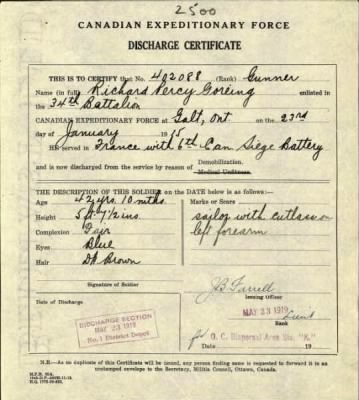 2500
CANADIAN EXPEDITIONARY FORCE
DISCHARGE CERTIFICATE
THIS IS TO CERTIFY that No. 402088 (Rank) Gunner
Name (in full) Richard Percy Goreing enlisted in
the 34th Battalion
CANADIAN EXPEDITIONARY FORCE at Galt, Ont on the 23rd
day of January 1915
HE served in France with 6th Can. Siege Battery
and is now discharged from the service by reason of Demobilization.
Medical Unfitness.
THE DESCRIPTION OF THIS SOLDIER on the DATE below is as follows:—
Age 42 yrs 10 mths. Marks or Scars
Height 5 ft 7½ ins. sailor with cutlass on
Complexion Fair left forearm
Eyes Blue
Hair Dk Brown
Signature of Soldier
J B Farrell
Issuing Officer
Date of Discharge
MAY 23 1919 Lieut
Rank
DISCHARGE SECTION
MAY 23 1919
No. 1 District Depot
for O. C. Dispersal Area Sta. "K."
N.B.—As no duplicate of this Certificate will be issued, any person finding same is requested to forward it in an
unstamped envelope to the Secretary, Militia Council, Ottawa, Canada.